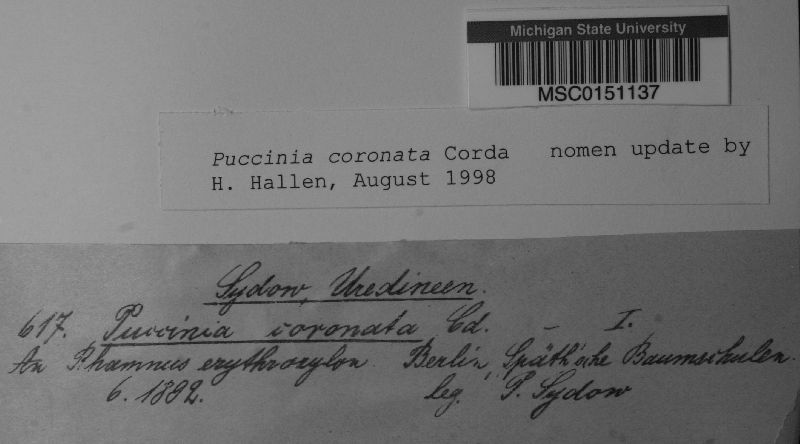 Michigan State University
MSC0151137
Puccinia coronata Corda nomen update by
H. Hallen, August 1998
Sydow, Uredineen.
617. Puccinia coronata Cd. – I.
An Rhamnus erythroxylon. Berlin, Späth'sche Baumschulen.
6. 1892. leg. P. Sydow